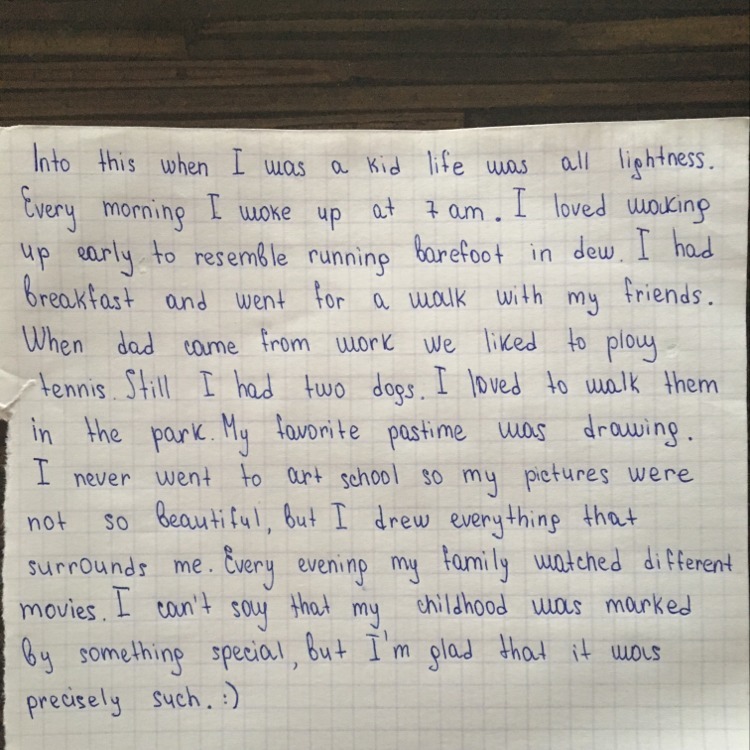 Into this when I was a kid life was all lightness.
Every morning I woke up at 7 am. I loved waking
up early to resemble running barefoot in dew. I had
breakfast and went for a walk with my friends.
When dad came from work we liked to play
tennis. Still I had two dogs. I loved to walk them
in the park. My favorite pastime was drawing.
I never went to art school so my pictures were
not so beautiful, but I drew everything that
surrounds me. Every evening my family watched different
movies. I can't say that my childhood was marked
by something special, but I'm glad that it was
precisely such. :)